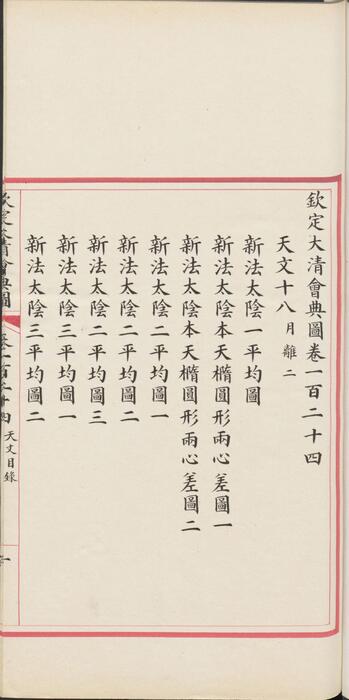 欽定大清會典圖卷一百二十四
天文十八月離二
新法太陰一平均圖
新法太陰本天橢圓形兩心差圖一
新法太陰本天橢圓形兩心差圖二
新法太陰二平均圖一
新法太陰二平均圖二
新法太陰二平均圖三
新法太陰三平均圖一
新法太陰三平均圖二
欽定大清會典圖
卷一百二十四
天文目錄